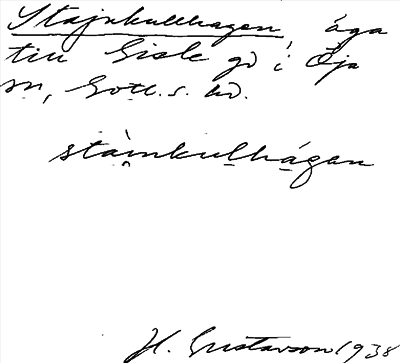 Stajnkullhagen, äga
till Gisle gd i Öja
sn, Gotl. s. hd.
stàinkulhágen
H. Gustavson 1938